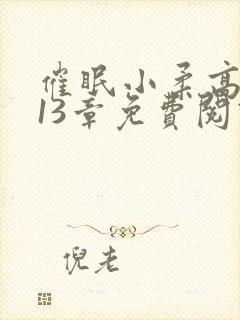 催眠小柔高
13章免費閱
倪老